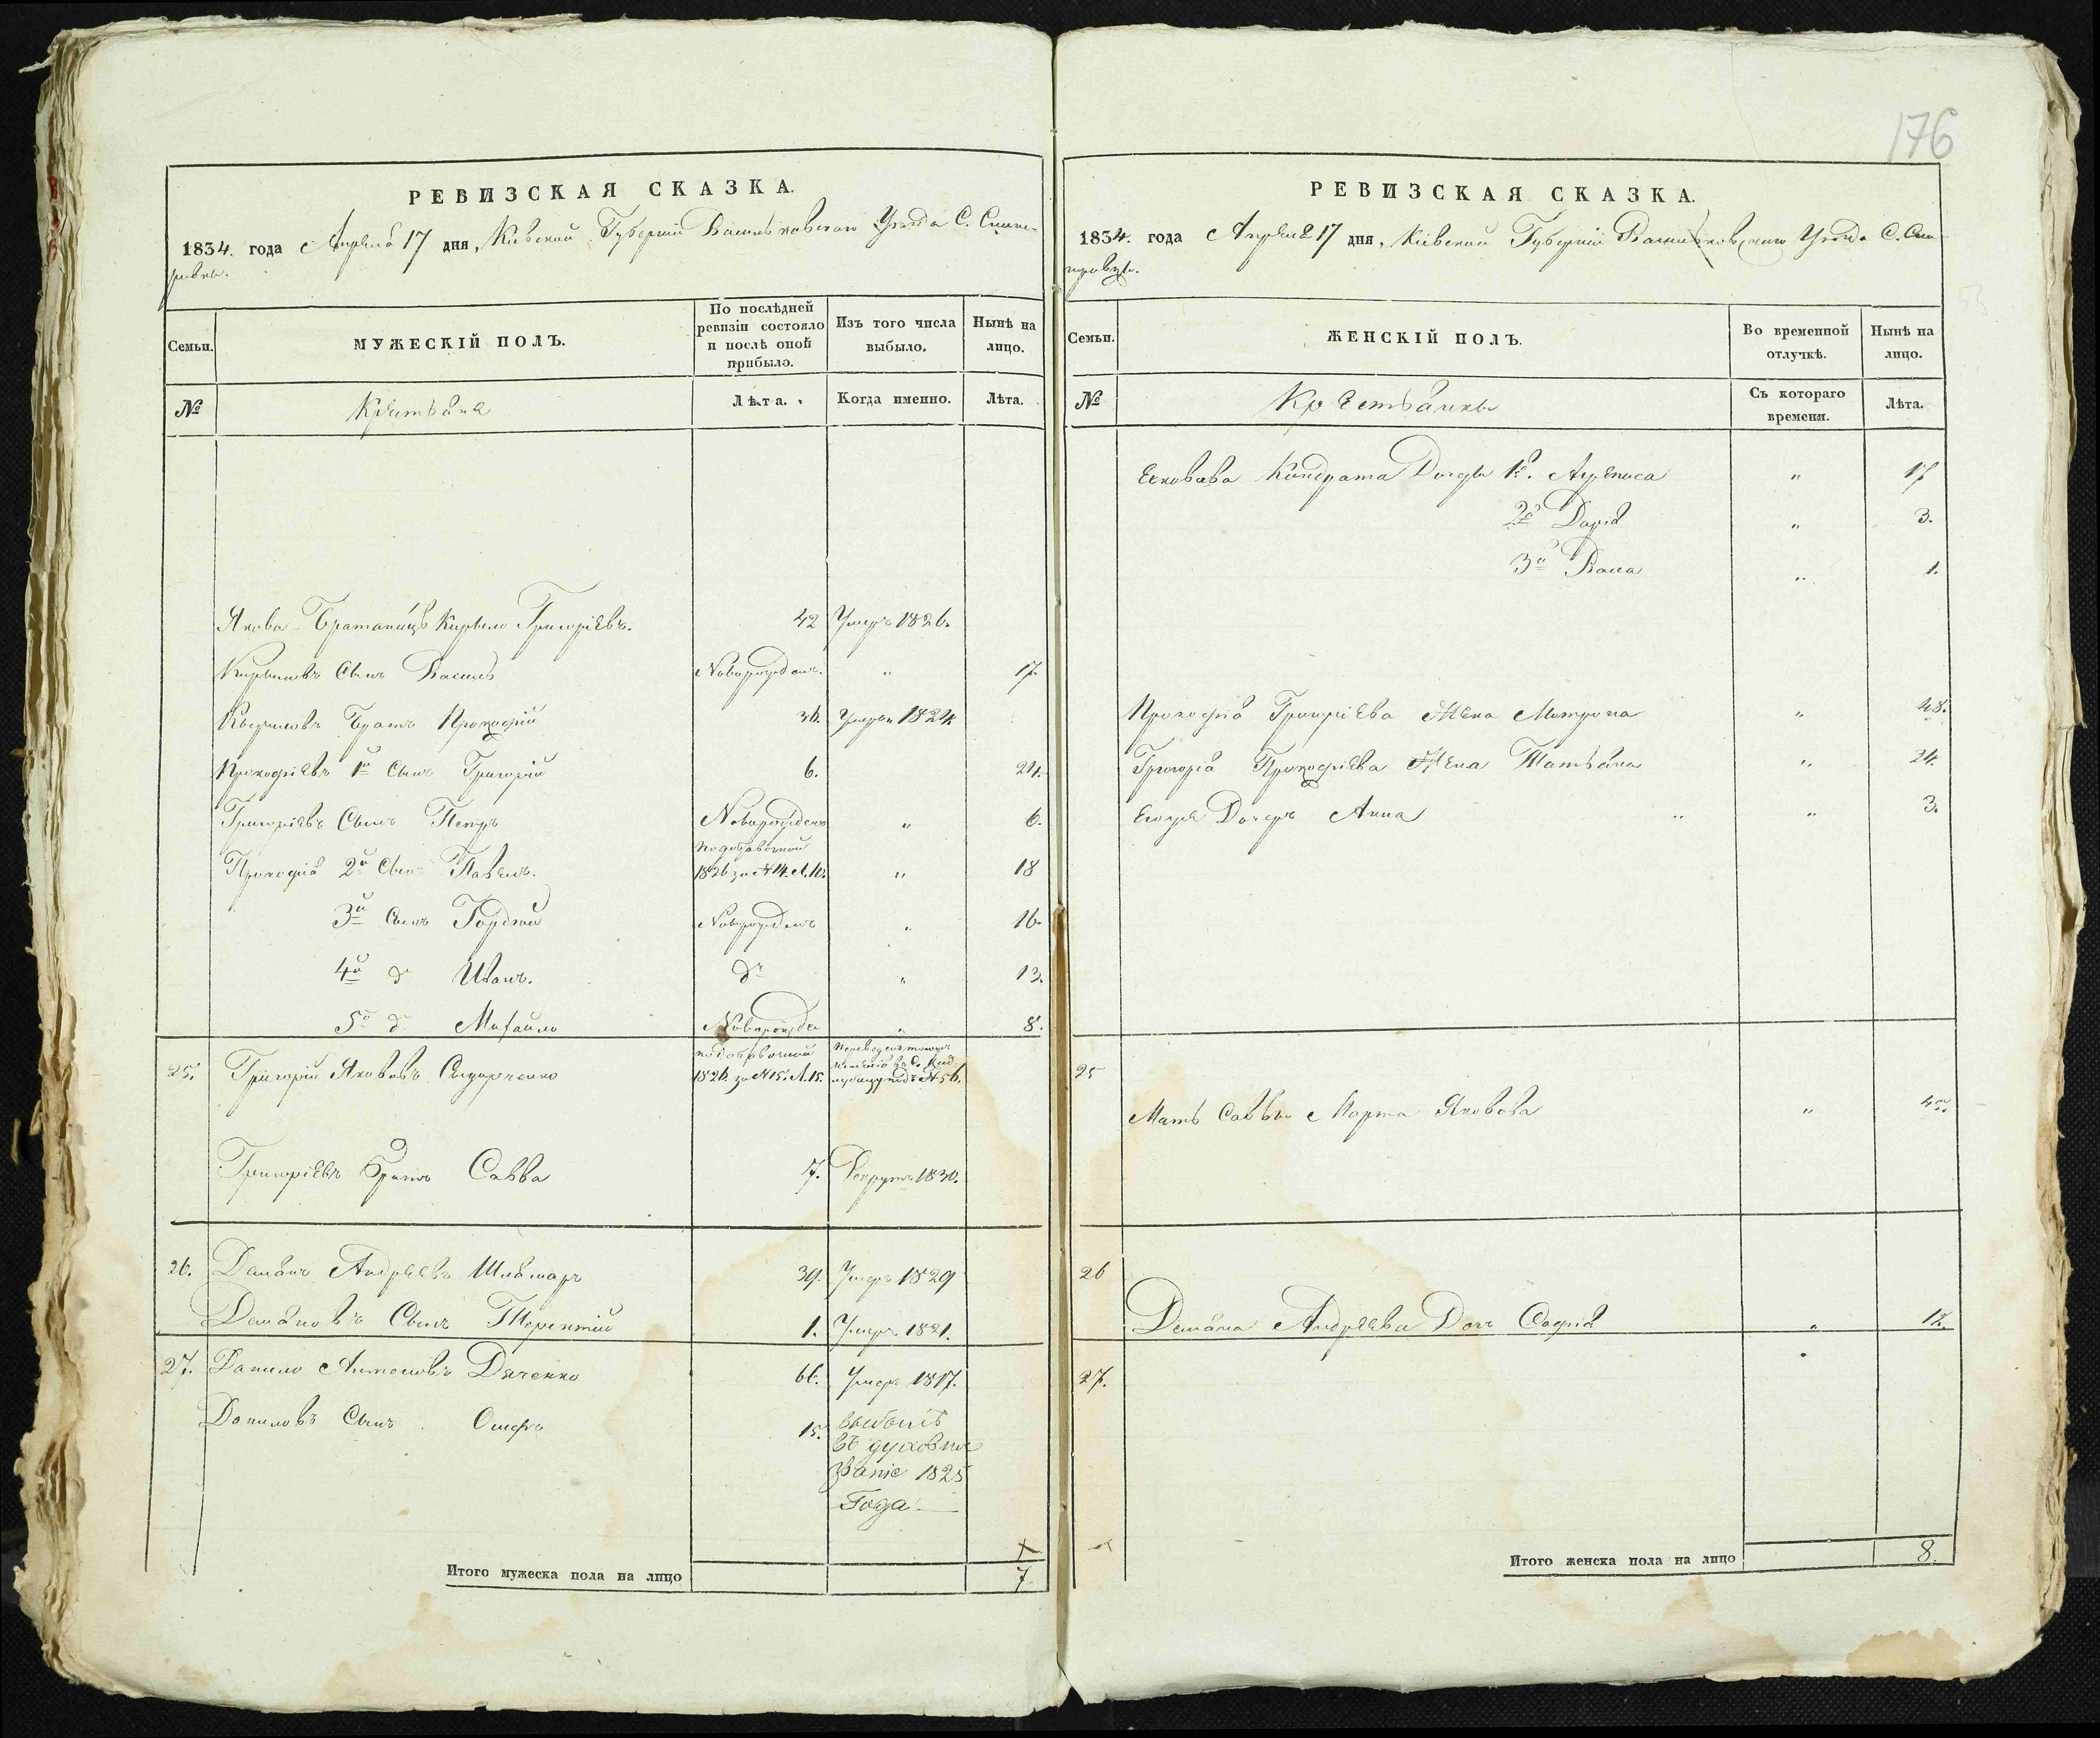 176
РЕВИЗСКАЯ СКАЗКА.
1834. года Апреля 17 дня, Киевской Губернии Васильковского Уезда С.
МУЖЕСКІЙ ПОЛЪ.
Семьи.
По послѣдней ревизіи состояло и послѣ оной прибыло.
Изъ того числа выбыло.
Нынѣ на лицо.
№
Крестьяне
Лѣта.
Когда именно.
Лѣта.
Якова Братаничь Кирыло Григоріевъ. 42 Умеръ 1826.
Кирыловъ Сынъ Василь Новорожденъ. " 17.
Кырыловъ Братъ Прокофій 36. Умеръ 1824
Прокофіевъ 1й Сынъ Григорій 6. 24.
Григоріевъ Сынъ Петръ Новорожденъ " 6.
Прокофія 2й Сынъ Павелъ. по добавочной 1826 за № 14. " 18
3й Сынъ Гордій Новорожденъ " 16.
4й д Иванъ. д " 13.
5й д Михайло Новорожден " 8.
25. Григорій Яковлвъ Сыдорченко по добавочной 1826 за № 15. под № 56.
Григоріевъ Братъ Савва 7. Рекрутъ 1830.
26. Демянъ Андреевъ 39. Умеръ 1829
Демяновъ Сынъ Терентій 1. Умеръ 1821.
27. Данило Антоновъ Дяченко 66. Умеръ 1817.
Даниловъ Сынъ Осифъ 15. выбылъ
въ духовное
званіе 1825
Года
Итого мужеска пола на лицо 7
РЕВИЗСКАЯ СКАЗКА.
1834. года Апреля 17 дня, Кіевской Губерніи Васильковского Уезда С.
Семьи.
ЖЕНСКІЙ ПОЛЪ.
Во временной отлучкѣ.
Нынѣ на лицо.
№
Крестьянки
Съ котораго времени.
Лѣта.
Кондрата Дочери 1я. " 17
2я Дарія " 3.
3я Васса " 1.
Прокофія Григоріева Жена Матрона " 48.
Григорія Прокофіева Жена Татьяна " 24.
Егоже Дочерь Анна " " 3.
25
Мать Саввы Марта Яковова " 45.
26
Демяна Андреева Доч Софія " 12.
27.
Итого женска пола на лицо 8.